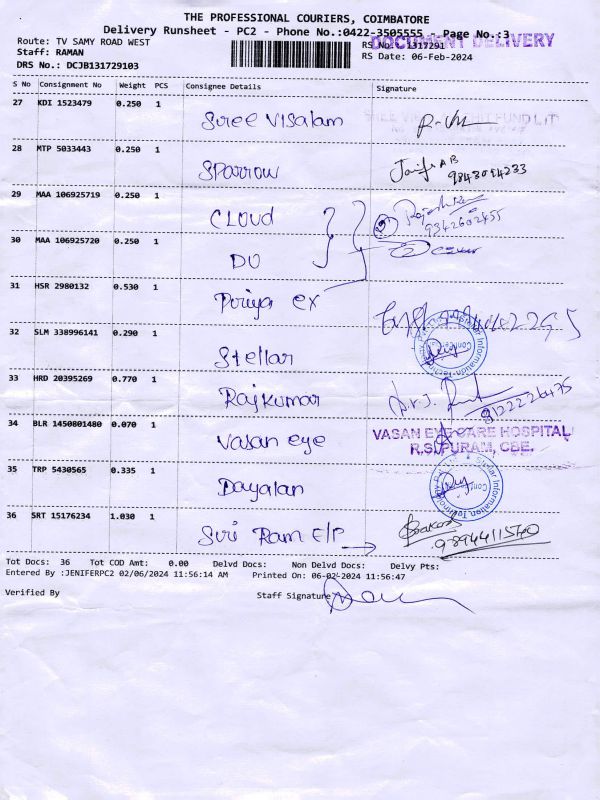 THE PROFESSIONAL COURIERS, COIMBATORE
Delivery Runsheet - PC2 - Phone No.:0422-3505555 - Page No.:3
DOCUMENT DELIVERY
Route: TV SAMY ROAD WEST
RS No: 1317291
Staff: RAMAN
RS Date: 06-Feb-2024
DRS No.: DCJB131729103
S No Consignment No Weight PCS Consignee Details Signature
27 KDI 1523479 0.250 1 Sree Visalam
28 MTP 5033443 0.250 1 Sparrow
29 MAA 106925719 0.250 1 CLOUD 9342602455
30 MAA 106925720 0.250 1 DO
31 HSR 2980132 0.530 1 Poriya ex
32 SLM 338996141 0.290 1 Stellar
33 HRD 20395269 0.770 1 Rajkumar
34 BLR 1450801480 0.070 1 Vasan eye
VASAN EYE CARE HOSPITAL
R.S.PURAM, CBE.
35 TRP 5430565 0.335 1 Dayalan
36 SRT 15176234 1.030 1 Siri Ram E/P
9894411540
Tot Docs: 36 Tot COD Amt: 0.00 Delvd Docs: Non Delvd Docs: Delvy Pts:
Entered By :JENIFERPC2 02/06/2024 11:56:14 AM Printed On: 06-02-2024 11:56:47
Verified By Staff Signature